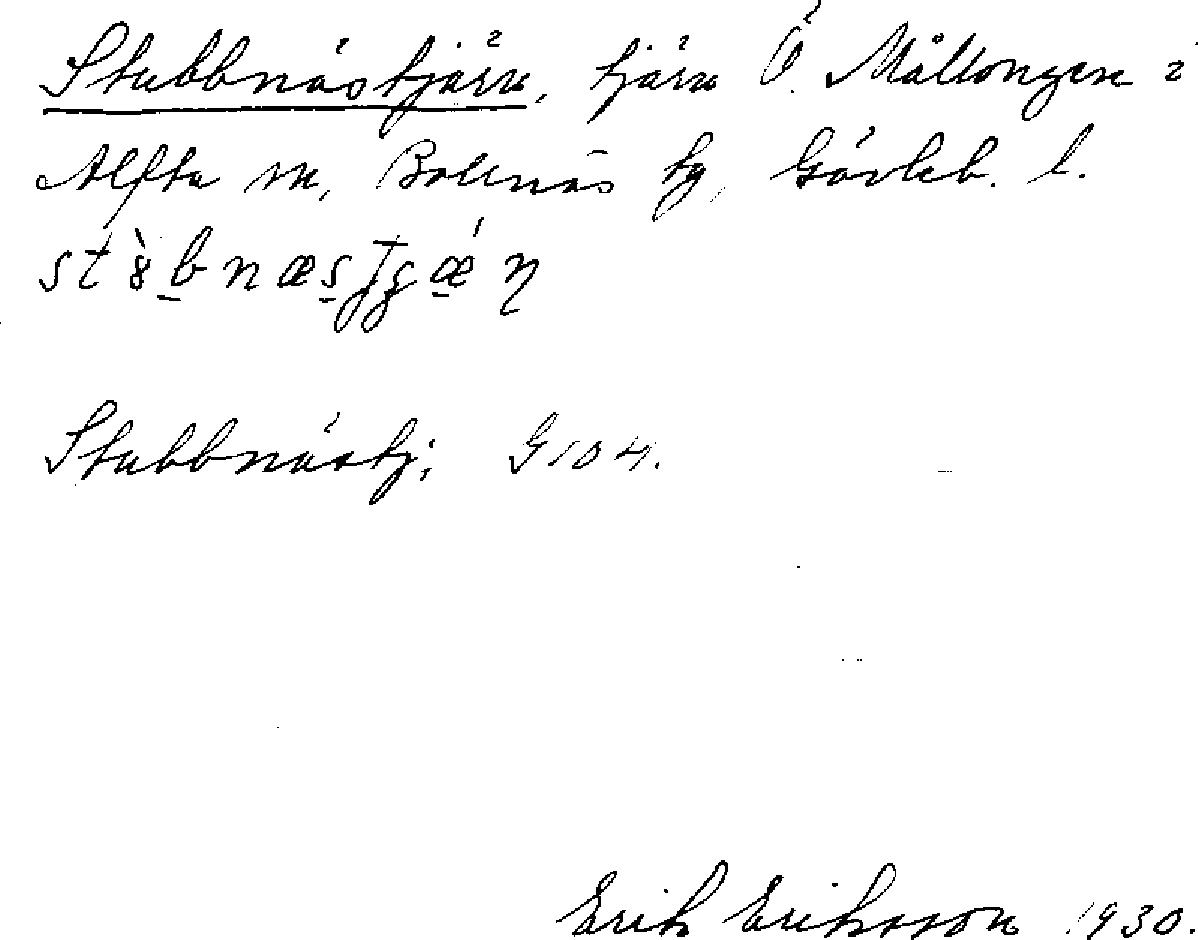 Stubbnästjärn, tjärn Ö. Mållongen i
Alfta sn, Bollnäs tg, Gävleb. l.
Stubbnästj; G 104.
Erik Eriksson 1930.